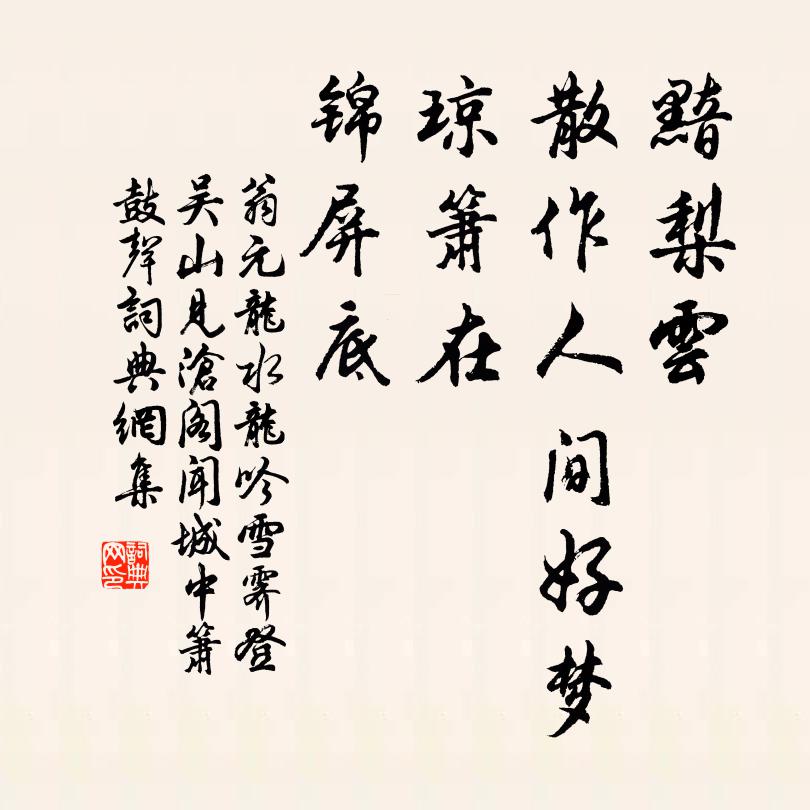 黯梨雲
散作人間好梦
琼箫在
锦屏底
翁元龍水龍吟雪霁登
吴山見滄阁闻城中箫
鼓聲詞典網集
詞典网印